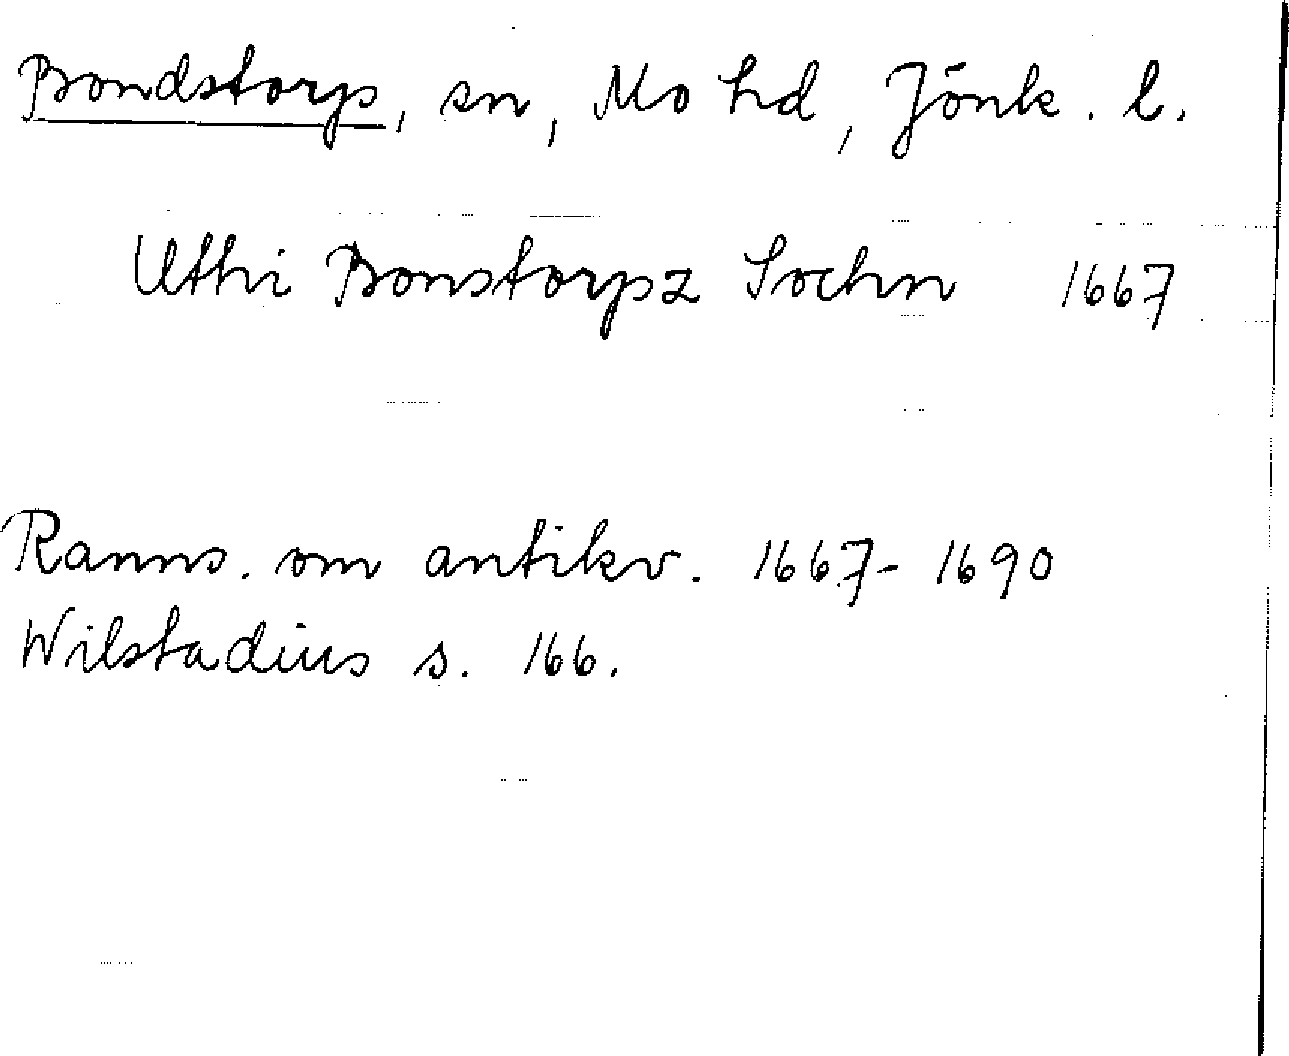 Bondstorp, sn, Mo hd, Jönk. l.
Uthi Bonstorpz Sochn 1667
Ranns. om antikv. 1667-1690
Wilstadius s. 166.